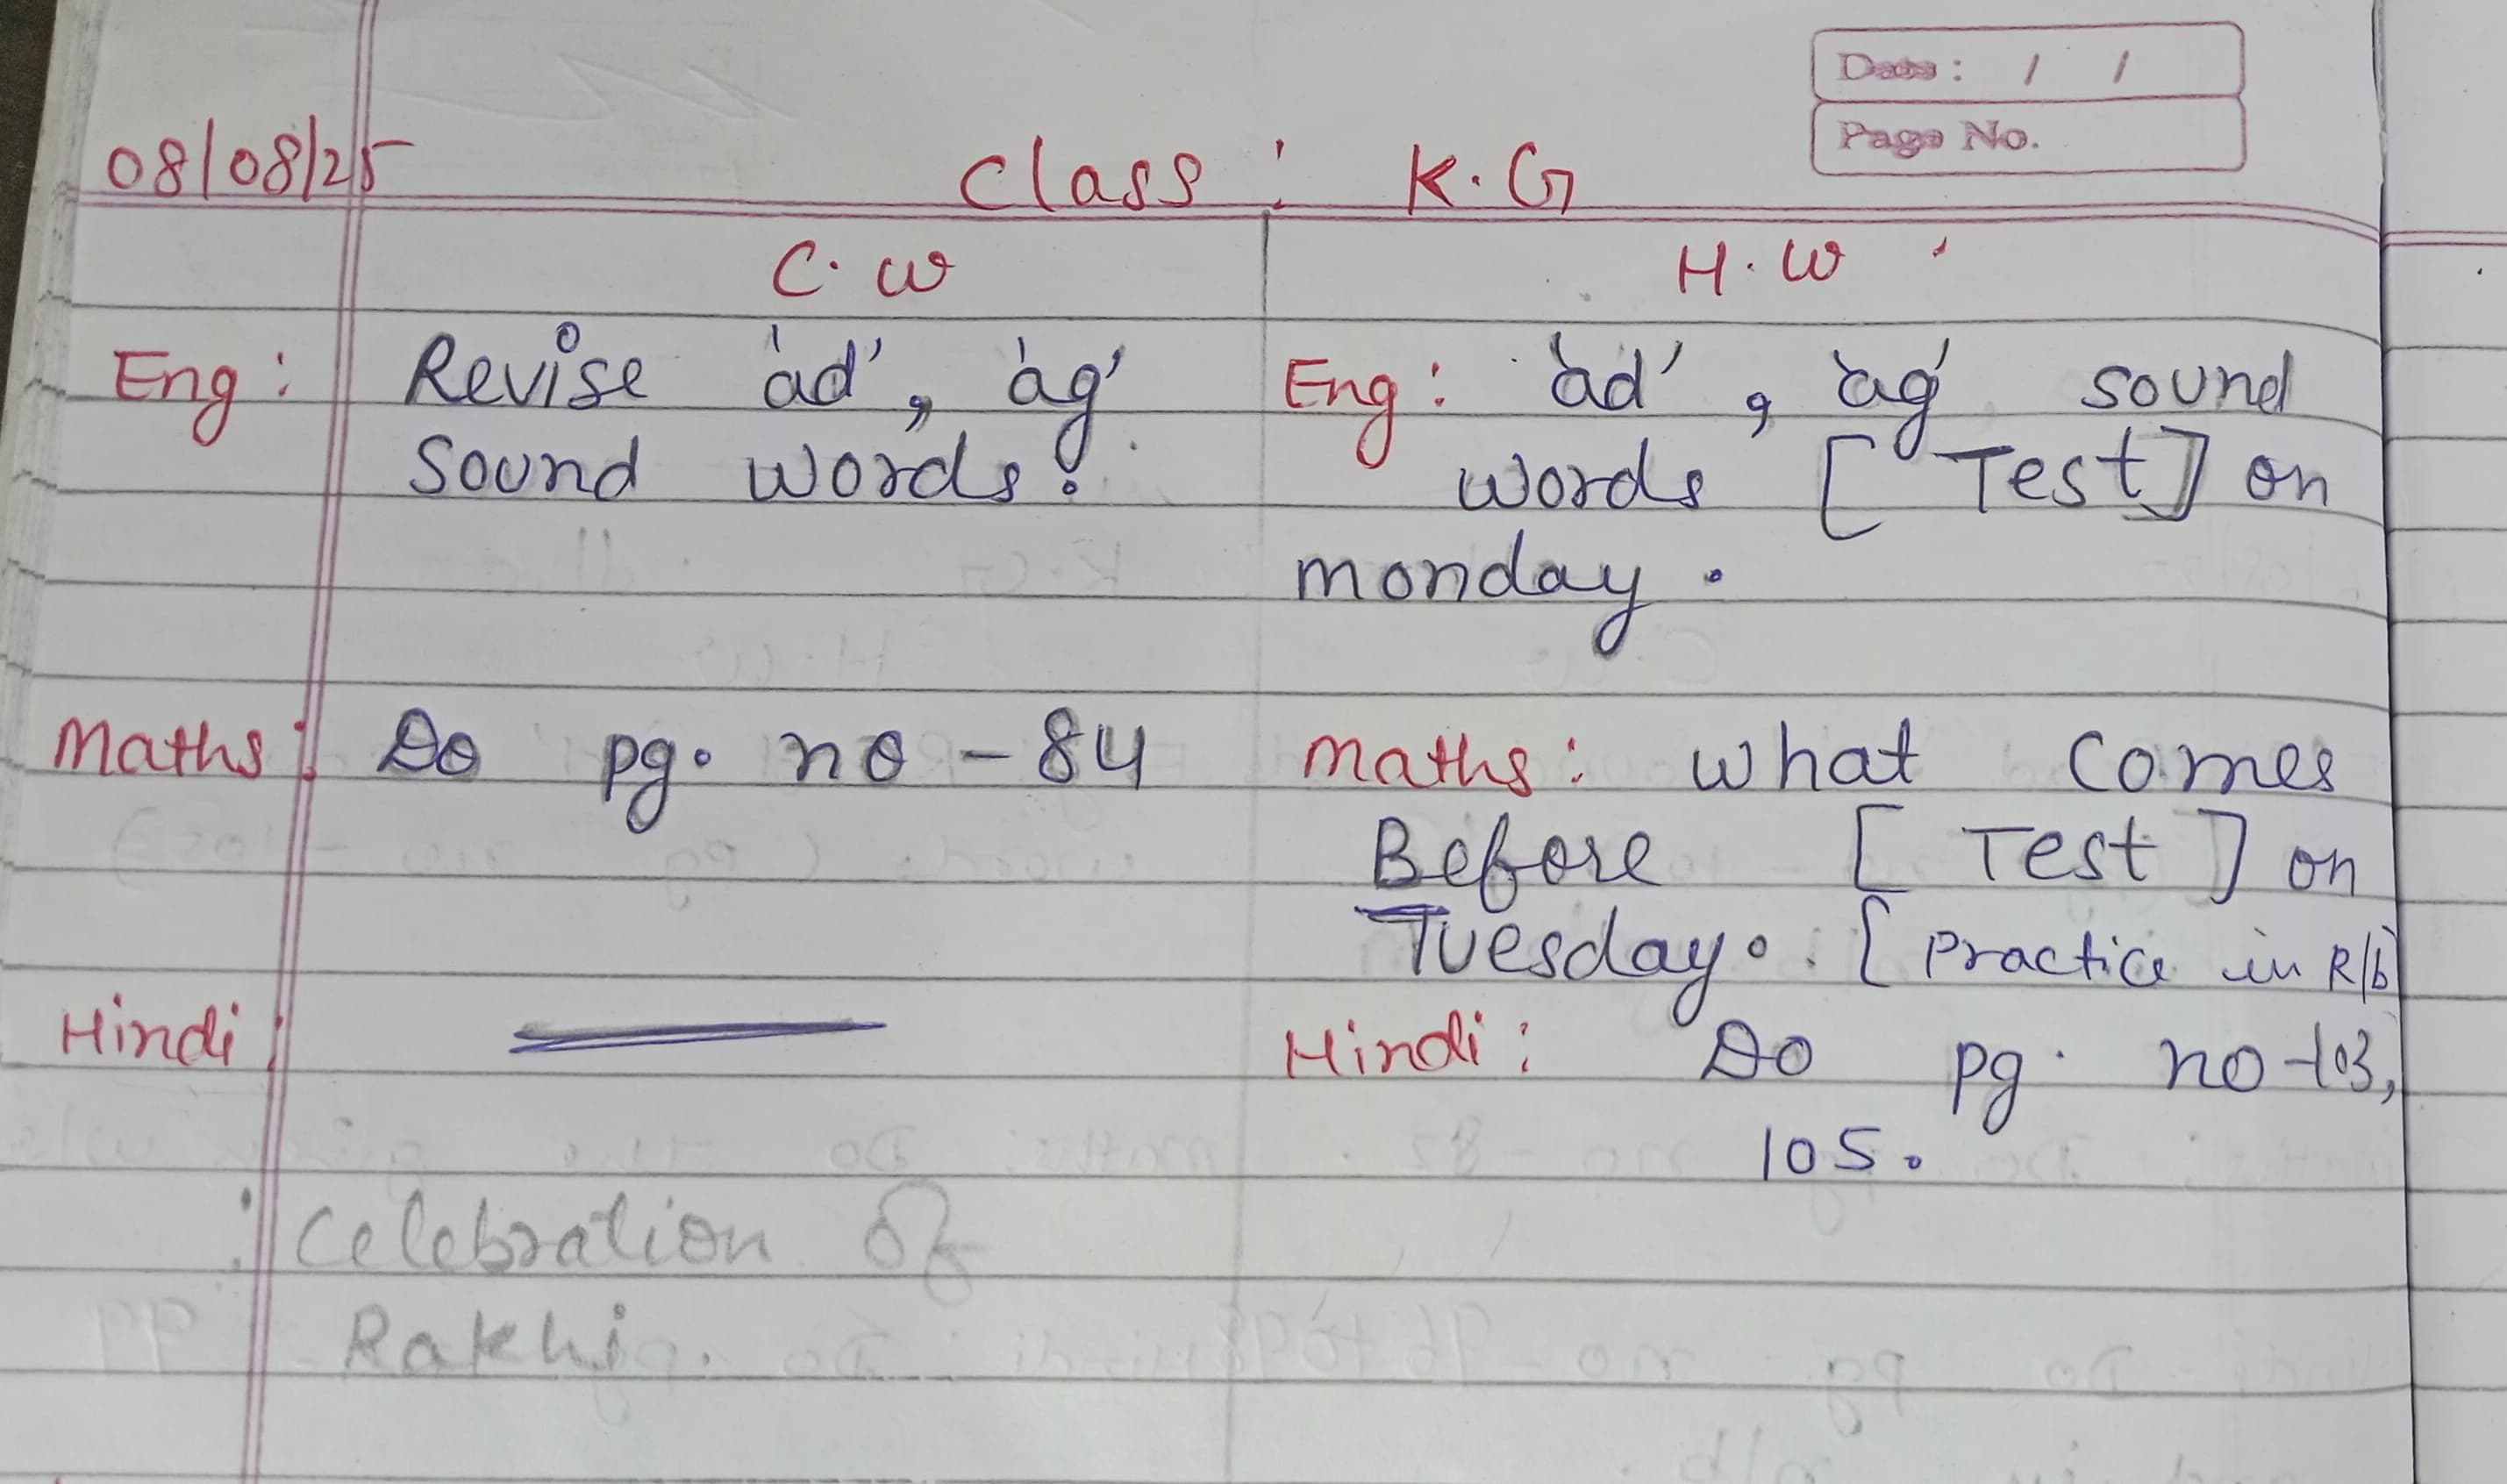 Date : / /
Page No.
08/08/25 Class : K.G
C.W H.W
Eng: Revise 'ad', 'ag' Eng: 'ad', 'ag' sound
Sound words. words [Test] on
monday.
Maths: Do pg. no - 84 Maths: what comes
Before [Test] on
Tuesday. [Practice in R/b]
Hindi: Hindi: Do pg. no - 103,
105.
: Celebration of
Rakhi.